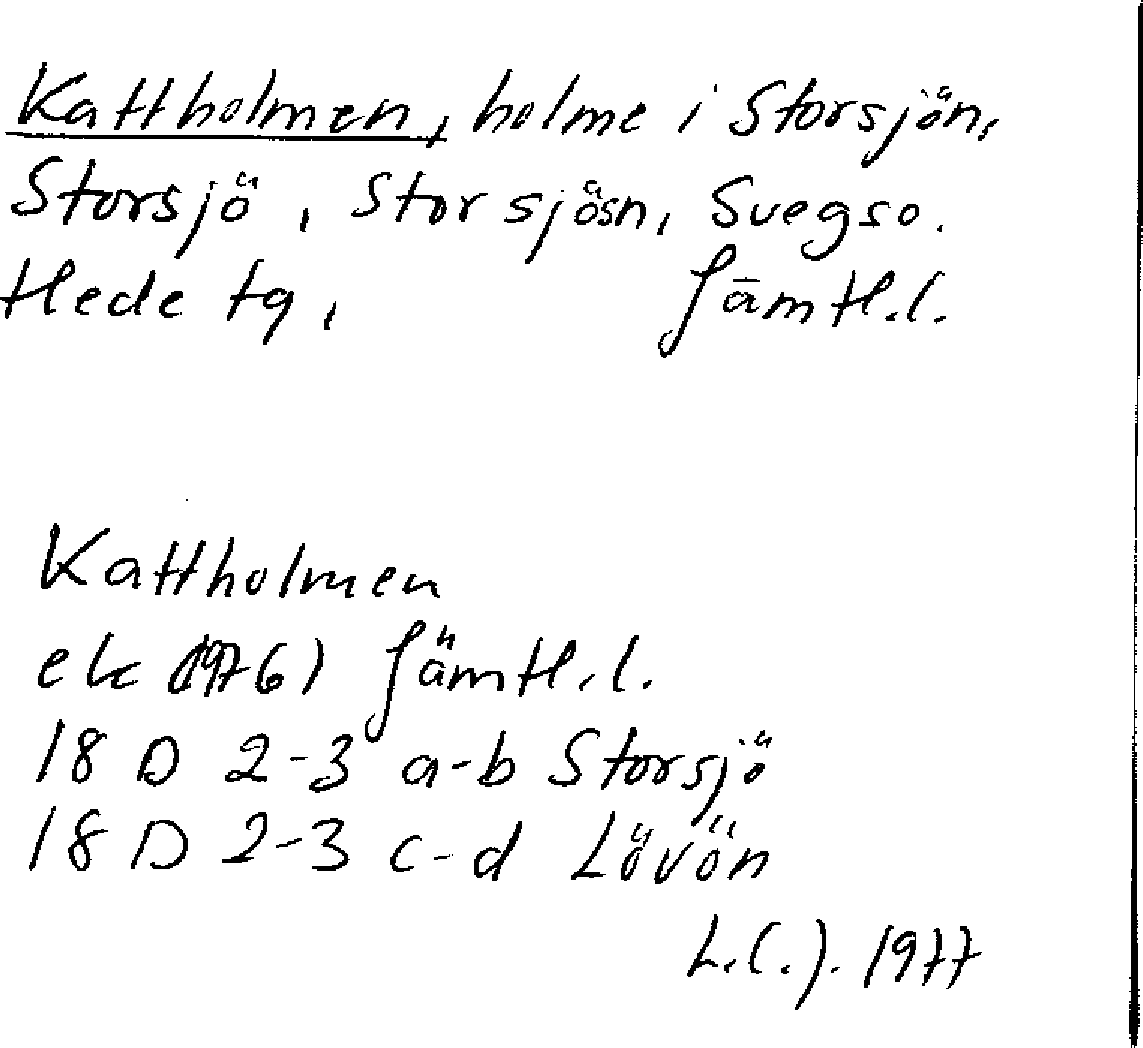 Kattholmen, holme i Storsjön,
Storsjö, Storsjösn, Svegso.
Hede tg, Jämtl.l.
Kattholmen
ek (1976) Jämtl.l.
18 D 2-3 a-b Storsjö
18 D 2-3 c-d Lövön
L.C.J. 1977